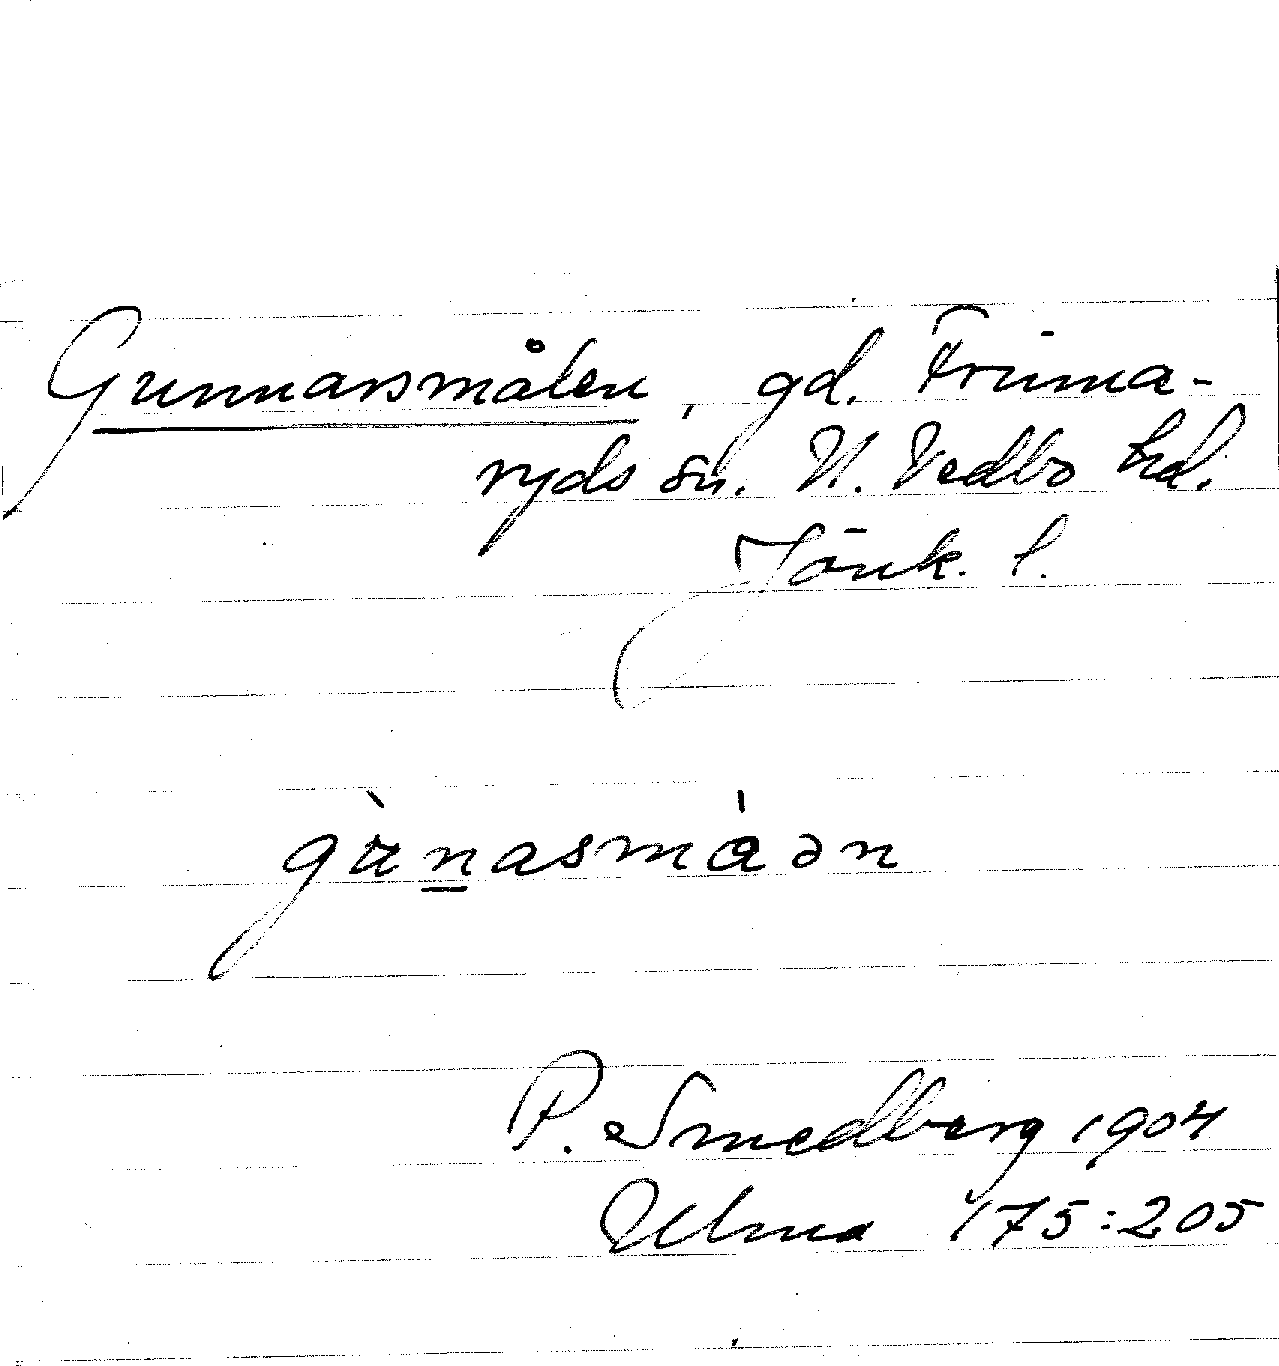 Gunnarsmålen, gd. Frinna-
ryds sn. N. Vedbo hd.
Jönk. l.
gànasmáən
P. Smedberg 1904
Ulma 175:205